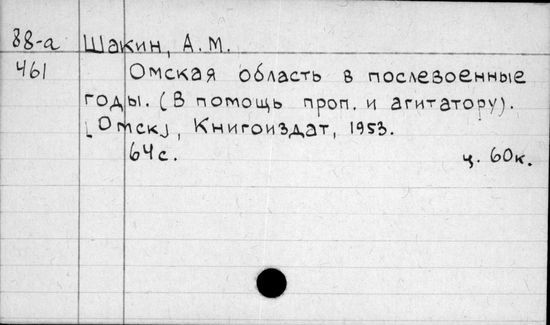 88-а Шакин, А.М.
461 Омская область в послевоенные
годы. (В помощь проп. и агитатору).
[Омск], Книгоиздат, 1953.
64с. ц. 60к.